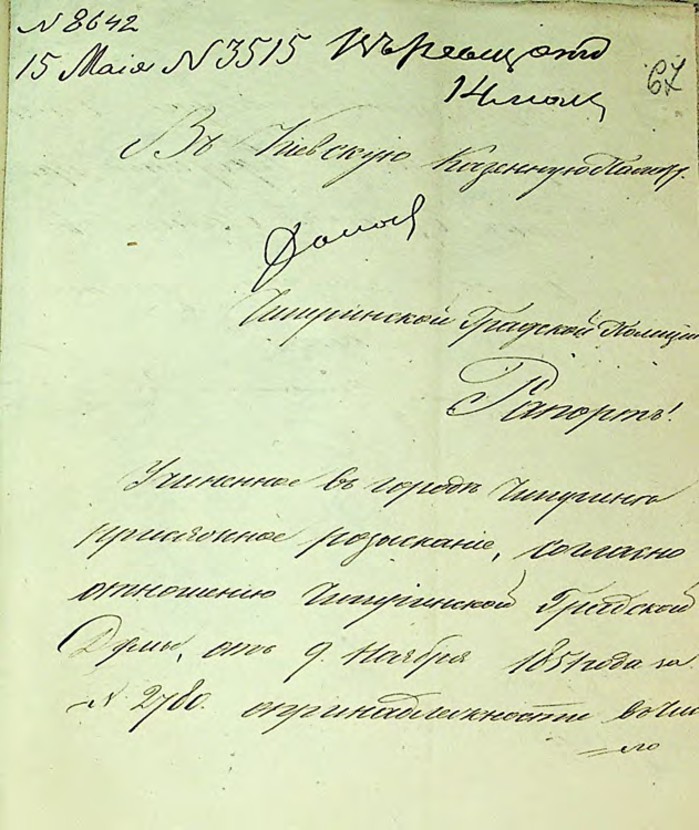 N 8642
15 Маія N 3515
14 мая
67
Въ Кіевскую Казенную Палату.
Чигиринской Градской Полиціи
Рапортъ!
Учиненное въ городѣ Чигиринѣ
присяжное розысканіе, согласно
отношенію Чигиринской Градской
Думы, отъ 9. Ноября 1851 года за
N. 2780. опринадлежности вочис
ло